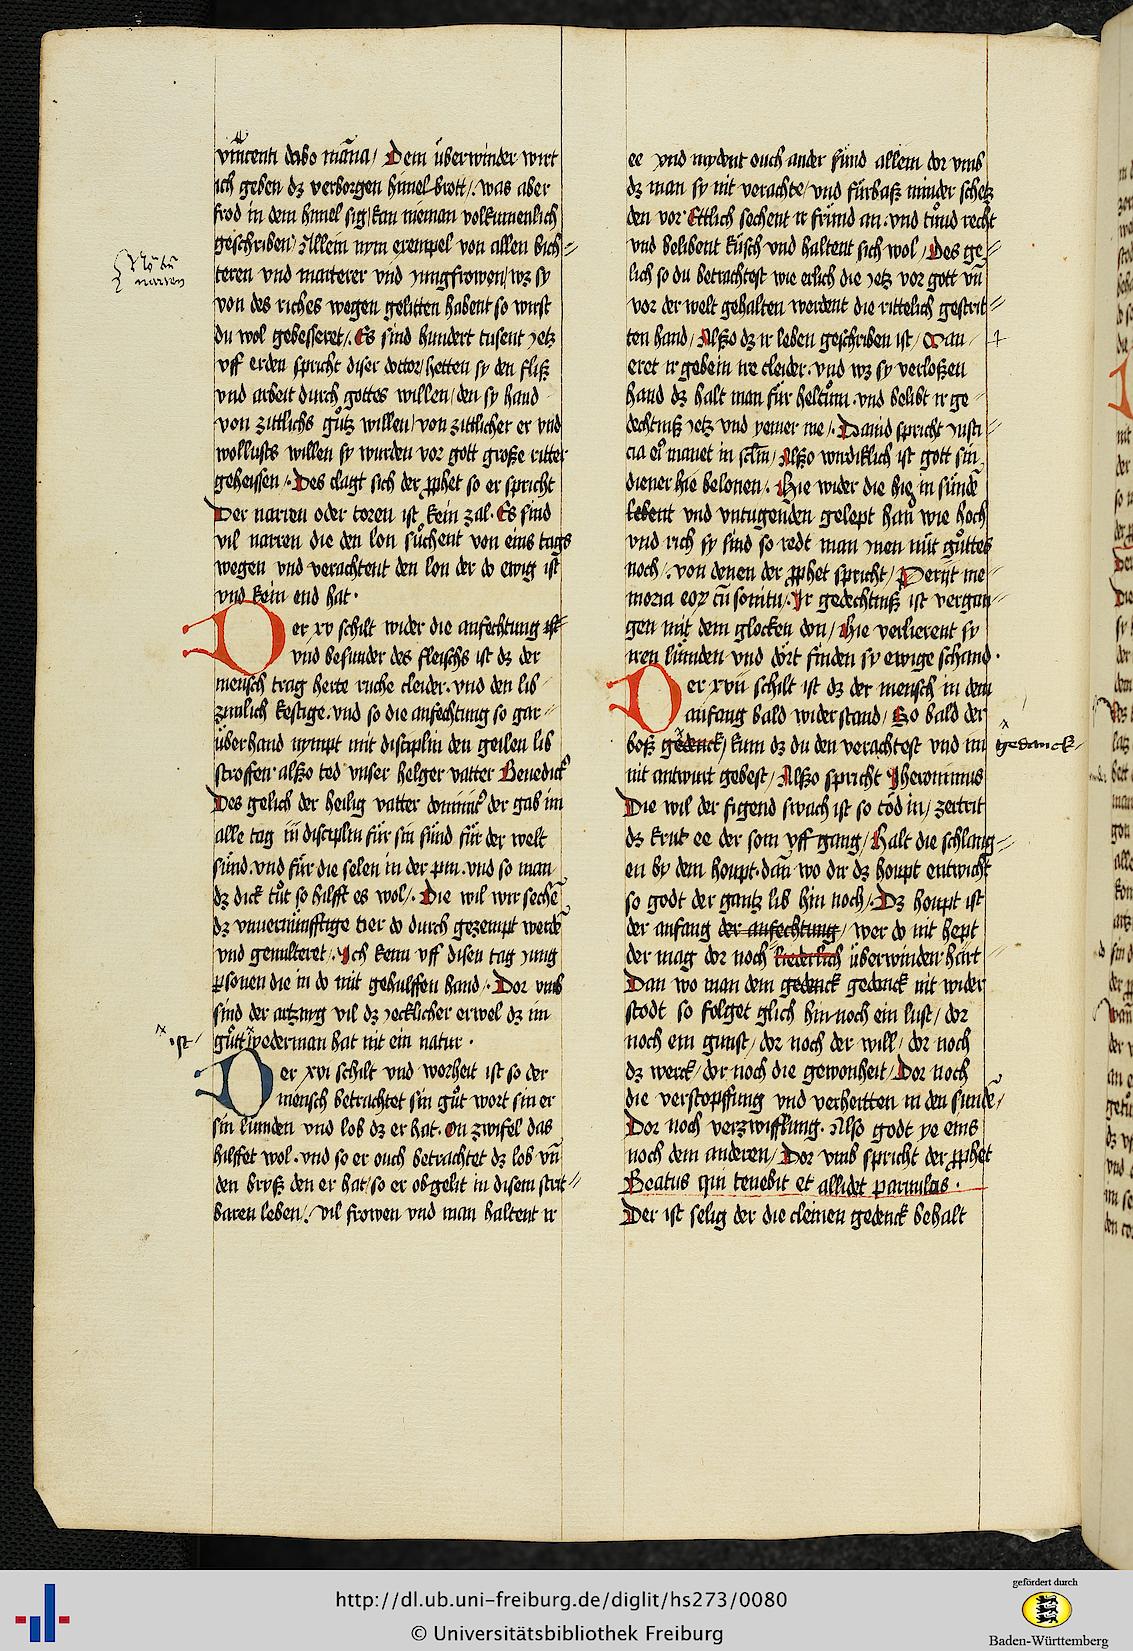 vincenti dabo māna/ Dem überwinder wirt
ich geben dz verborgen himel brott/. was aber
frod in dem himel sig/ kan nieman volkumenlich
geschriben/ Allein nym exempel von allen bich=
teren vnd marterer vnd yungfrowen/ wz sy
von des riches wegen gelitten habent so wirst
du wol gebesseret/. Es sind hundert tusent yetz
vff erden spricht diser doctor/ hetten sy den fliß
vnd arbeit durch gottes willen/ den sy hand
von zittlichs gůtz willen/ von zittlicher er vnd
wollusts willen sy wurden vor gott große ritter
geheissen/. Des clagt sich der pphet so er spricht
Der narren oder toren ist kein zal. Es sind
vil narren die den lon sůchent von eins tags
wegen vnd verachtent den lon der do ewig ist
vnd kein end hat.
Der xv schilt wider die anfechtung ist
vnd besunder des fleischs ist dz der
mensch trag herte ruche cleider. vnd den lib
zimlich kestige. vnd so die anfechtung so gar
überhand nympt mit disciplin den geilen lib
stroffen alßo ted vnser helger vatter Benedict
Des gelich der heilig vatter dominic9 der gab im
alle tag iii disciplin für sin sünd für der welt
sünd. vnd für die selen in der pin. vnd so man
dz dick tůt so hilfft es wol/. Die wil wir sechē
dz vnuernünfftige tier do durch gezempt werdē
vnd gemilteret/. Ich kenn vff disen tag yung
psonen die in do mit gehulffen hand/. Dor vmb
sind der artzny vil dz yecklicher erwel dz im
gůtt yederman hat nit ein natur.
Der xvi schilt vnd worheit ist so der
mensch betrachtet sin gůt wort sin er
sin lümden vnd lob dz er hat. on zwifel das
hilffet wol. vnd so er ouch betrachtet dz lob vn̄
den bryß den er hat/ so er obgelit in disem strit=
baren leben/. vil frowen vnd man haltent ir
Nō bn̄
narren
ist/
ee vnd mydent ouch ander sünd allein dor vmb
dz man sy nit verachte/ vnd fürbaß minder schetz
den vor. Ettlich sechent ir fründ an. vnd tůnd recht
vnd belibent küsch vnd haltent sich wol/ Des ge=
lich so du betrachtest wie erlich die yetz vor gott vn̄
vor der welt gehalten werdent die rittelich gestrit=
ten hand/ Alßo dz ir leben geschriben ist/ Man
eret ir gebein ire cleider. vnd wz sy verloßen
hand dz halt man für heltům. vnd belibt ir ge=
dechtniß yetz vnd yemer me/. Dauid spricht yusti=
cia ei9 manet in sclm̄/ Alßo wirdiklich ist gott sin
diener hie belonen/. Hie wider die hie in sünde
lebent vnd vntugenden gelept han wie hoch
vnd rich sy sind so redt man ynen nüt gůttes
noch/. von denen der pphet spricht/ Perijt me=
moria eoꝝ cū sonitu/. Ir gedechtniß ist vergan=
gen mit dem glocken don/ Hie verlierent sy
iren lümden vnd dört finden sy ewige schand.
Der xvii schilt ist dz der mensch in dem
anfang bald widerstand/ So bald der
boß gedenck/ kum dz du den verachtest vnd im
nit antwurt gebest/ Alßo spricht Jheronimus
Die wil der figend swach ist so töd in/ zertrit
dz krut ee der som vff gang/ Halt die schlang=
en by dem houpt. dan̄ wo dir dz houpt entwicht
so godt der gantz lib hin noch/. Dz houpt ist
der anfang der anfechtung/ wer do nit hept
der mag dor noch liederlich überwinden hart
Dan wo man dem gedenck gedanck nit wider
stodt so folget glich hin noch ein lust/ dor
noch ein gunst/ dor noch der will/ dor noch
dz werck/ dor noch die gewonheit/ Dor noch
die verstopffung vnd verhertten in den sünden/
Dor noch verzwifflung. Also godt ye eins
noch dem anderen/ Dor vmb spricht der pphet
Beatus qui tenebit et allidet paruulos.
Der ist selig der die cleinen gedenck behalt
gedanck/
http://dl.ub.uni-freiburg.de/diglit/hs273/0080
© Universitätsbibliothek Freiburg
gefördert durch
Baden-Württemberg